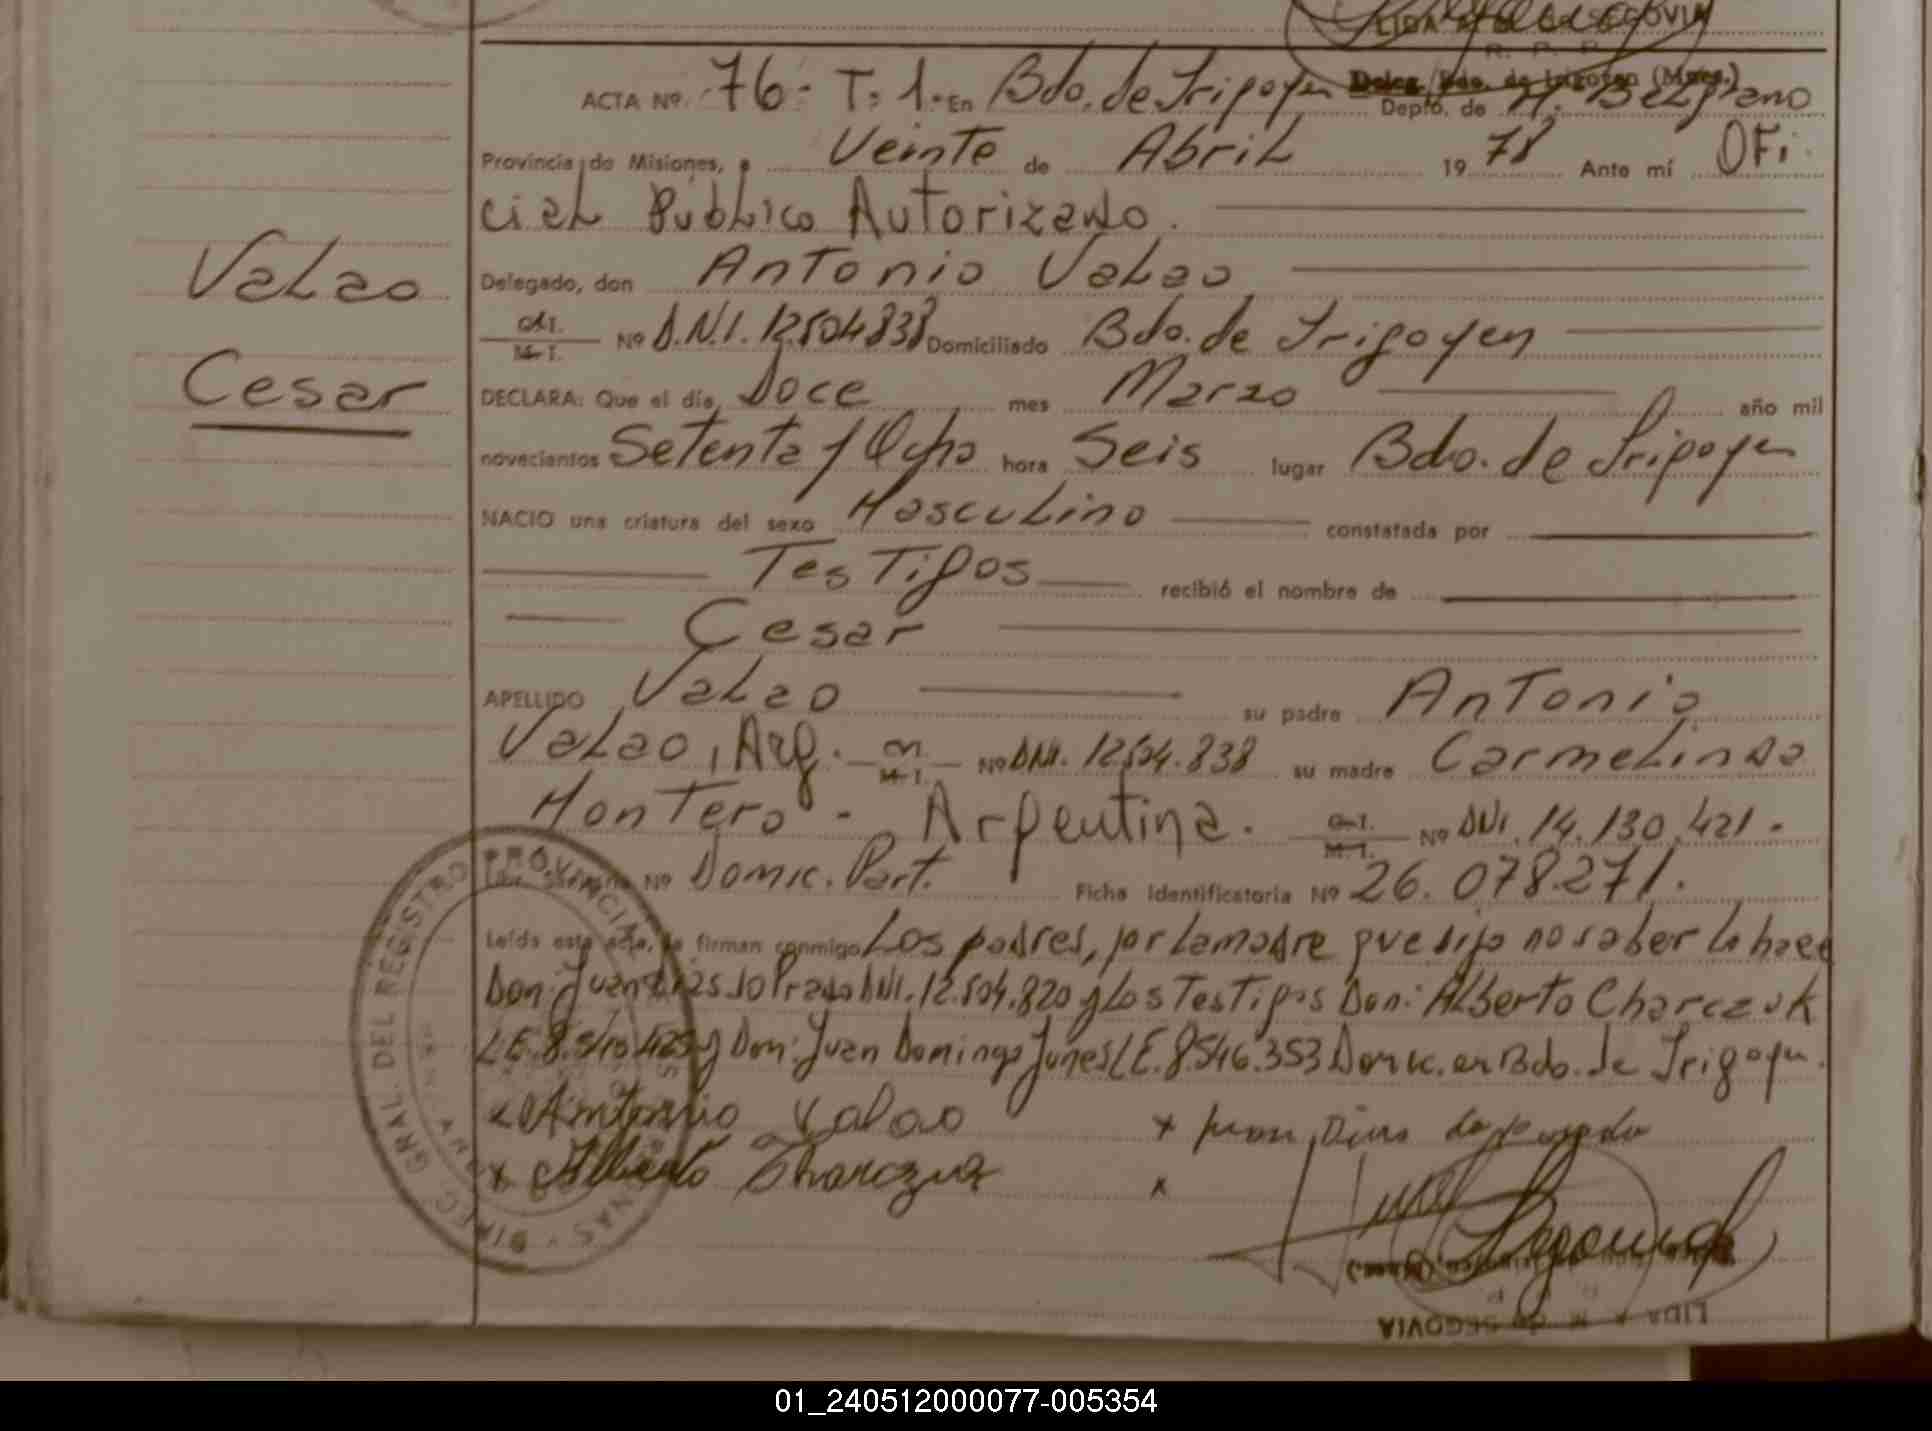 LIDA A. M. de SEGOVIA
R. P. P.
Deleg. Bdo. de Irigoyen (Mnes.)
ACTA Nº 76- T: 1- En Bdo. de Irigoyen Depto. de M. Belgrano
Provincia de Misiones, a Veinte de Abril 1978 Ante mí OFi
cial Público Autorizado.
Delegado, don Antonio Valao
Valao
C.I. M.I. Nº D.N.I. 12.504.838 Domiciliado Bdo. de Irigoyen
Cesar
DECLARA: Que el día Doce mes Marzo año mil
novecientos Setenta y Ocho hora Seis lugar Bdo. de Irigoyen
NACIO una criatura del sexo Masculino constatada por
Testigos recibió el nombre de
Cesar
APELLIDO Valao su padre Antonio
Valao, Arg. C.I. M.I. Nº DNI. 12.504.838 su madre Carmelinda
Montero - Argentina. C.I. M.I. Nº DNI. 14.130.421-
Nº Domic. Part. Ficha Identificatoria Nº 26.078.271.
Leída esta acta, la firman conmigo Los padres, por la madre que dijo no saber lo hace
Don: Juan Dias do Prado DNI. 12.504.820 y Los Testigos Don: Alberto Charczuk
L.E. 8.540.425 y Don: Juan Domingo Junes L.E. 8.546.353 Domic. en Bdo. de Irigoyen.
x Antonio Valao x Juan Dias do prado
x Alberto Charczuk x
DIREC. GRAL. DEL REGISTRO PROVINCIAL
LIDA A. M. de SEGOVIA
01_240512000077-005354